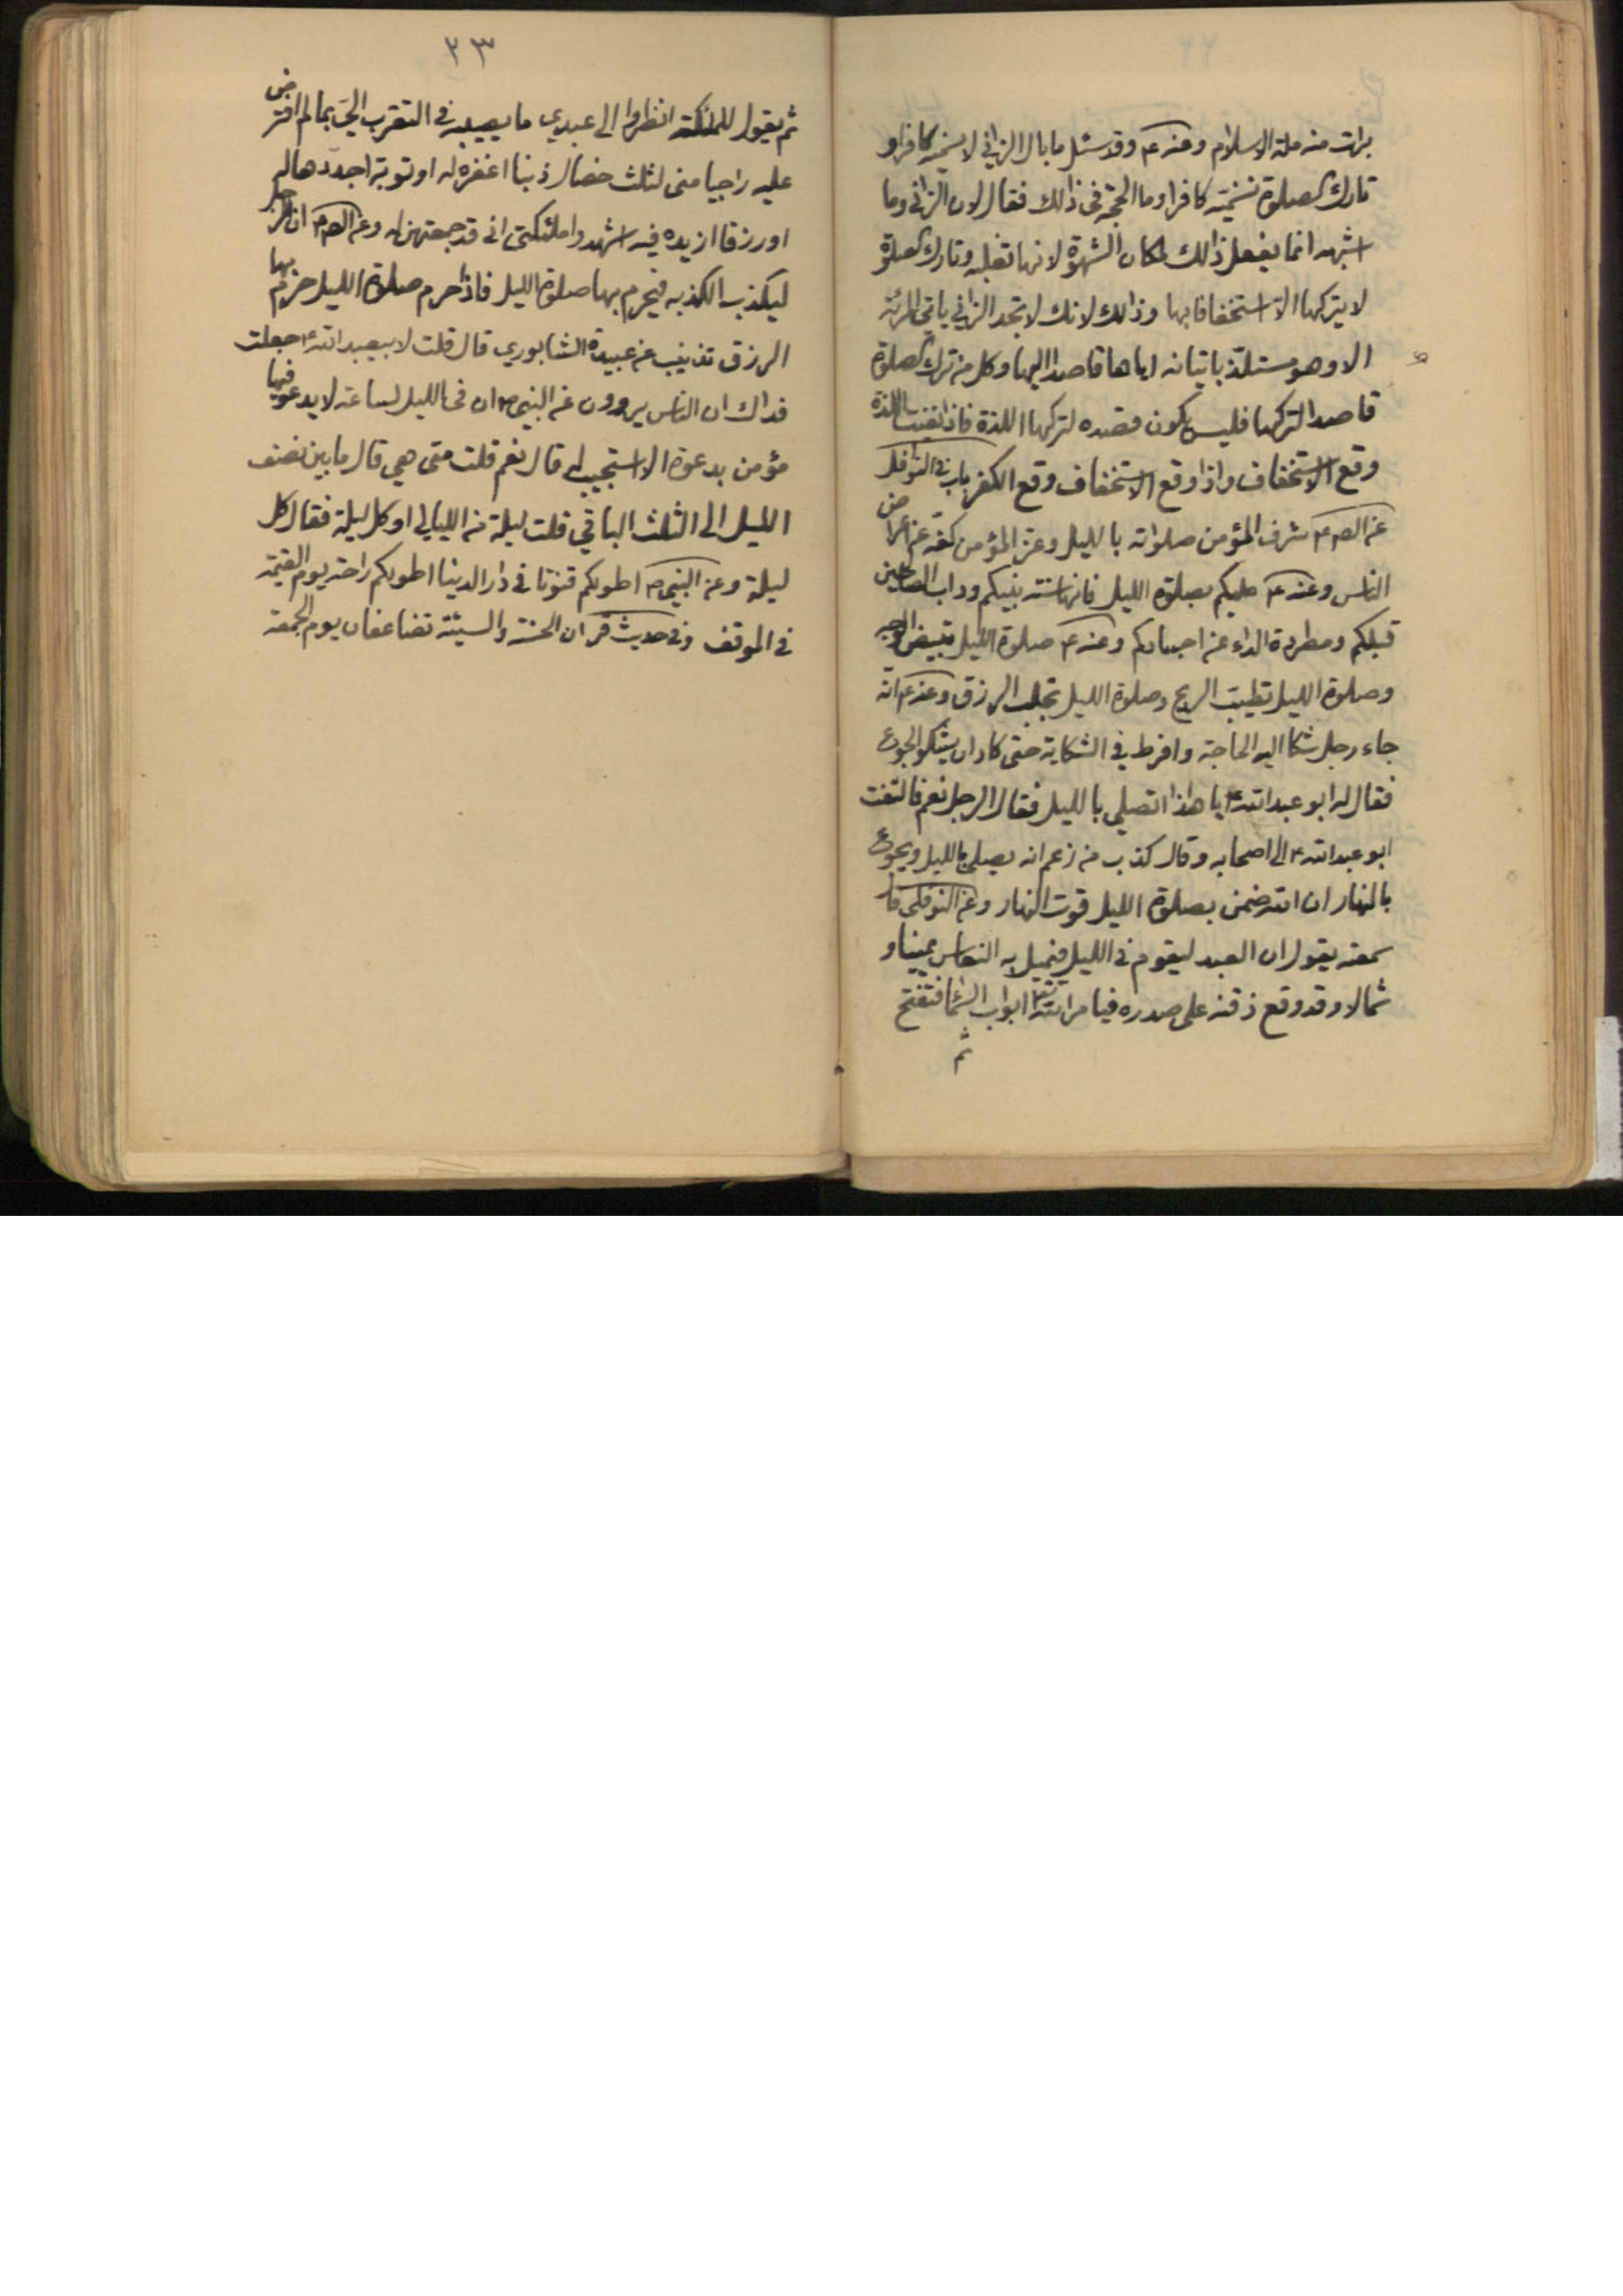 برئت منه ملة الاسلام وعنه ع وقد سئل ما بال الزاني لا يسميه كافرا و
تارك الصلوة نسميه كافرا وما الحجة في ذالك فقال لان الزاني وما
اشبهه انما يفعل ذالك لمكان الشهوة لانها تغلبه وتارك الصلوة
لا يتركها الا استخفافا بها وذالك لانك لا تجد الزاني ياتي المرئة
الا وهو مستلذ باتيانه اياها قاصدا اليها وكل من ترك الصلوة
قاصدا لتركها فليس يكون قصده لتركها اللذة فاذا نفيت اللذة
وقع الاستخفاف واذا وقع الاستخفاف وقع الكفر باب في النوافل
عن الص ع شرف المؤمن صلواته بالليل وعز المؤمن كفه عن اعراض
الناس وعنه ع عليكم بصلوة الليل فانها سنة نبيكم وداب الصالحين
قبلكم ومطردة الداء عن اجسادكم وعنه ع صلوة الليل تبيض الوجه
وصلوة الليل تطيب الريح وصلوة الليل تجلب الرزق وعنه ع انه
جاء رجل شكا اليه الحاجة وافرط في الشكاية حتى كاد ان يشكو الجوع
فقال له ابو عبد الله ع يا هذا اتصلي بالليل فقال الرجل نعم فالتفت
ابو عبد الله ع الى اصحابه وقال كذب من زعم انه يصلي بالليل ويجوع
بالنهار ان الله ضمن بصلوة الليل قوت النهار وعن النوفلي قال
سمعته يقول ان العبد ليقوم في الليل فيميل به النعاس يمينا و
شمالا وقد وقع ذقنه على صدره فيامر الله تعالى ابواب السماء فتفتح
ثم
٢٣
ثم يقول للملئكة انظروا الى عبدي ما يصيبه في التقرب الي بما لم افترض
عليه راجيا منى لثلث خصال ذنبا اغفره له او توبة اجددها له
او رزقا ازيده فيه اشهدوا ملئكتى انى قد جمعتهن له وعن الص ع ان الرجل
ليكذب الكذبه فيحرم بها صلوة الليل فاذا حرم صلوة الليل حرم بها
الرزق تذنيب عن عبيدة الشابوري قال قلت لابيعبد الله ع جعلت
فداك ان الناس يروون عن النبي ص ان في الليل لساعة لا يدعو فيها
مؤمن بدعوة الا استجيب له قال نعم قلت متى هي قال ما بين نصف
الليل الى الثلث الباقي قلت ليلة من الليالي او كل ليلة فقال كل
ليلة وعن النبي ص اطولكم قنوتا في دار الدنيا اطولكم راحة يوم القيمة
في الموقف وفي حديث قر ان الحسنة والسيئة تضاعفان يوم الجمعة